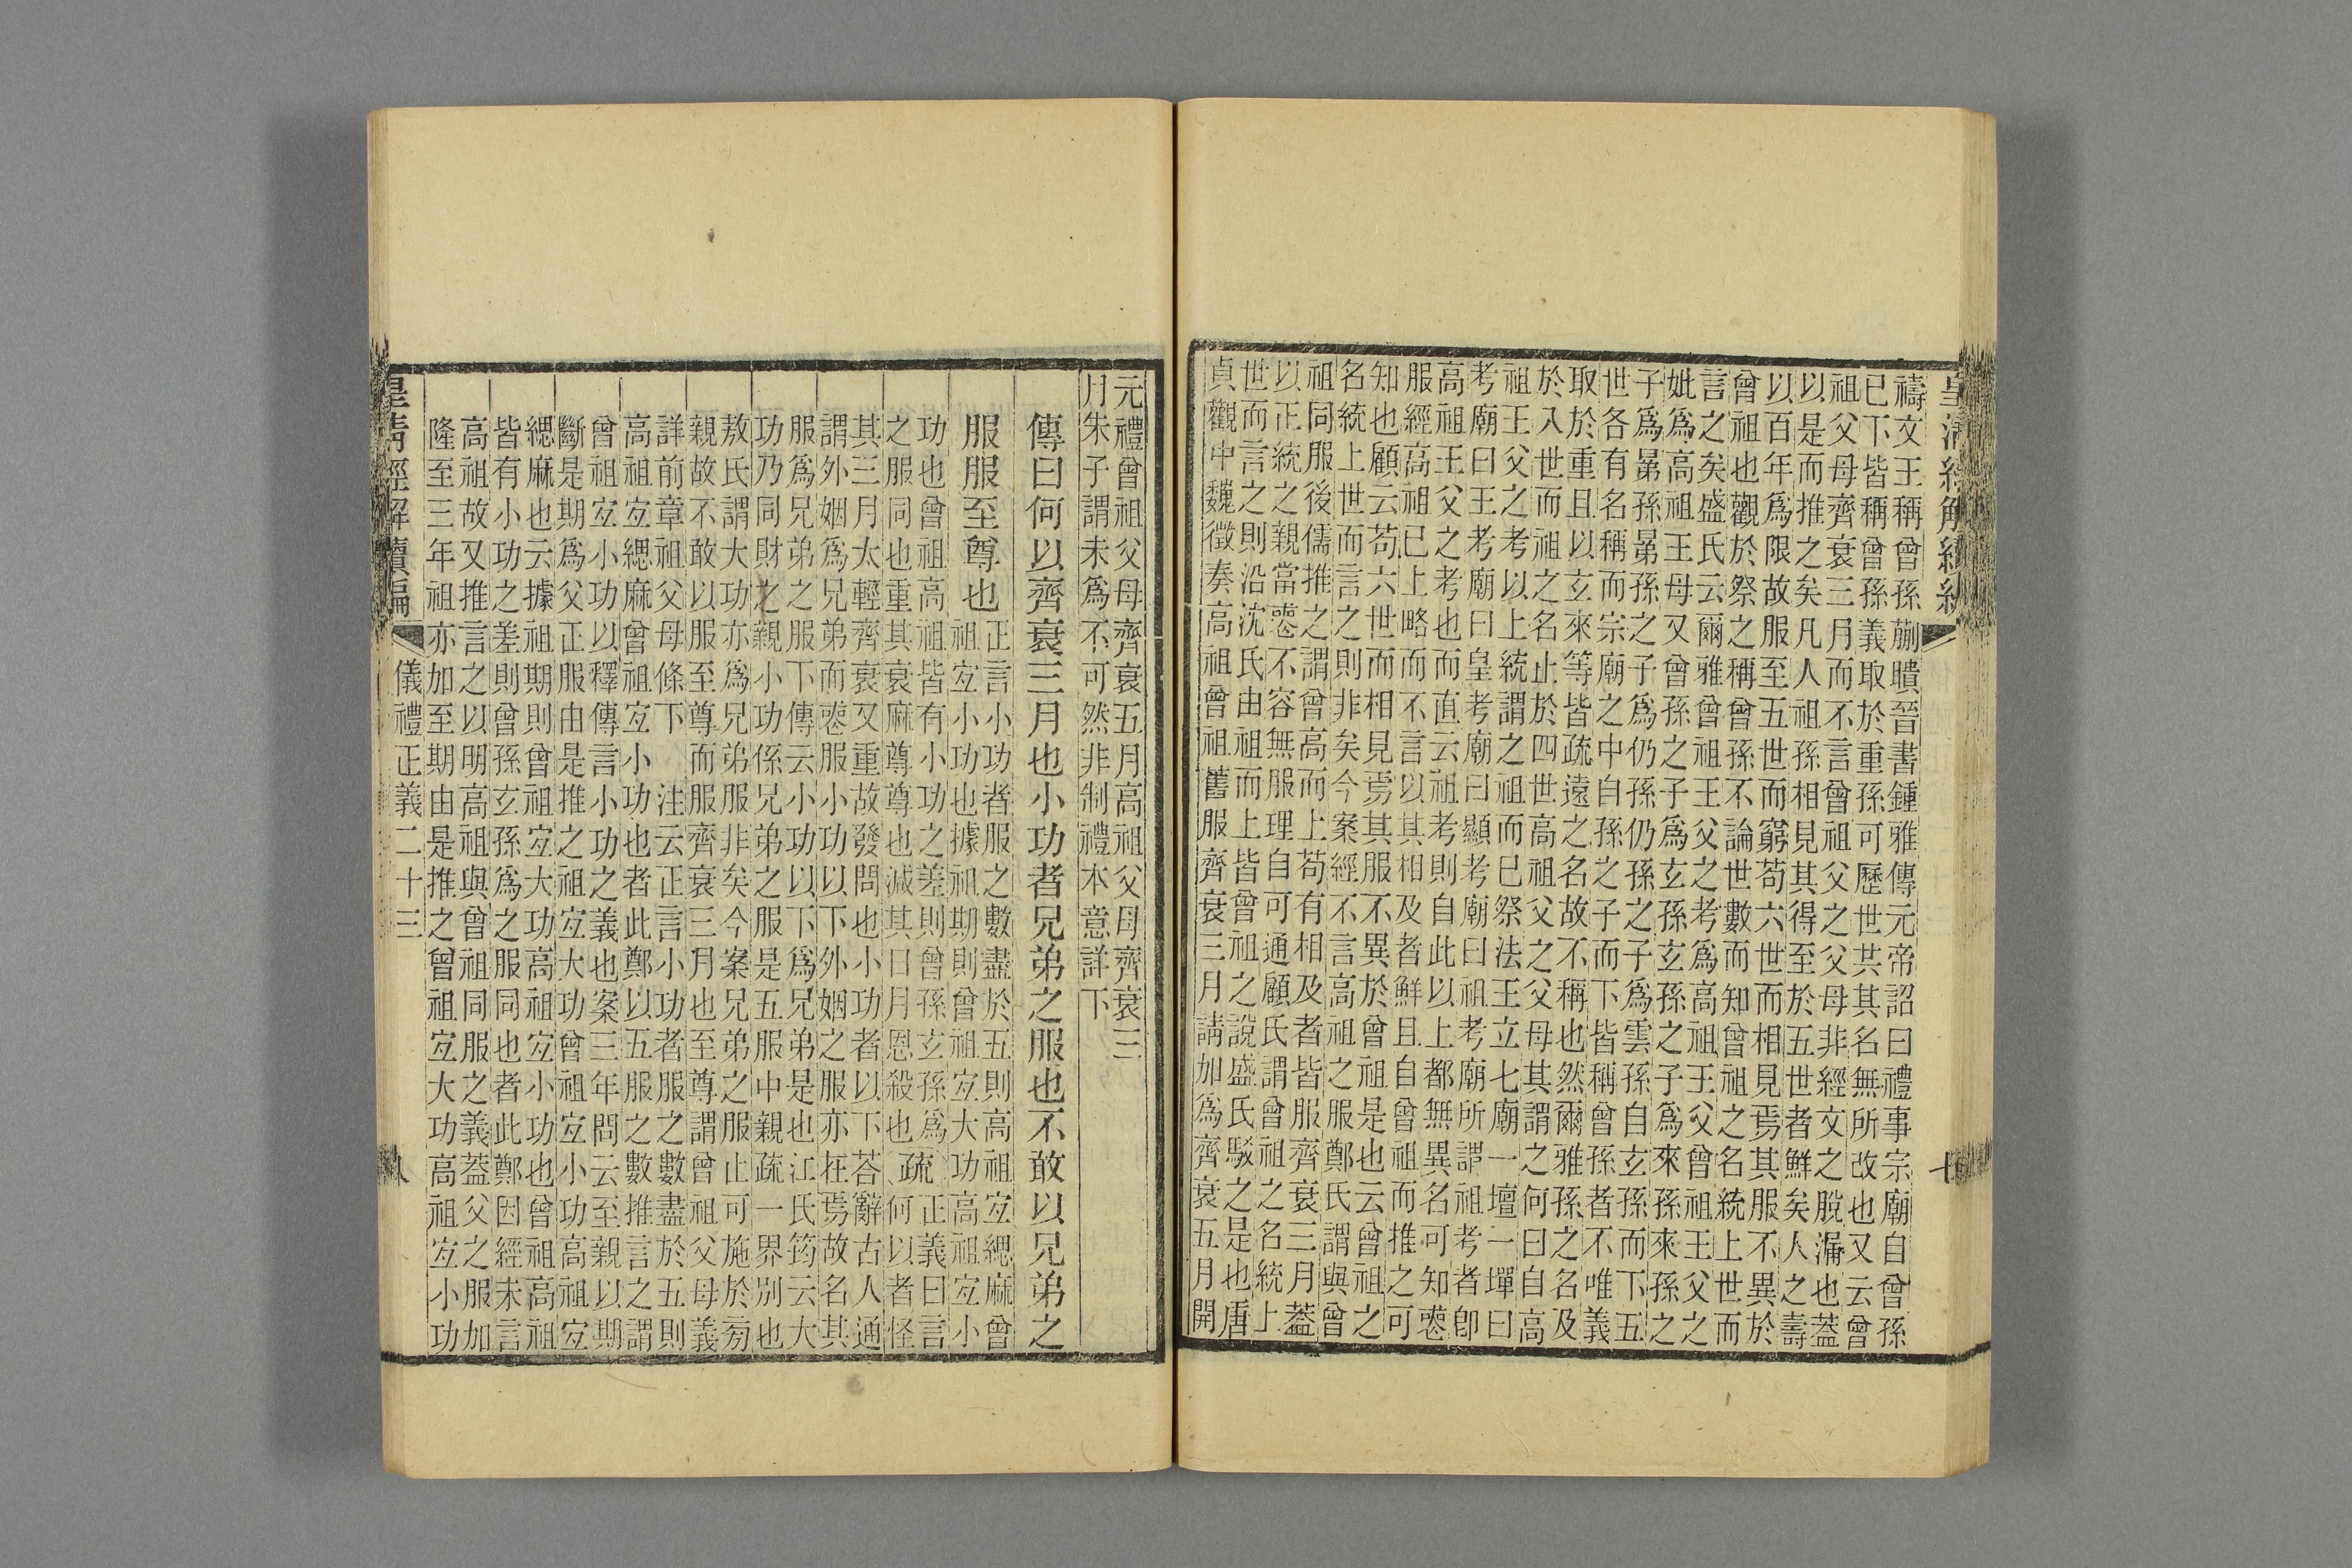 禱文王稱曾孫蒯聵晉書鍾雅傳元帝詔曰禮事宗廟自曾孫
已下皆稱曾孫義取於重孫可歷世共其名無所改也又云曾
祖父母齊衰三月而不言曾祖父之父母非經文之脫漏也蓋
以是而推之矣凡人祖孫相見其得至於五世者鮮矣人之壽
以百年爲限故服至五世而窮苟六世而相見焉其服不異於
曾祖也觀於祭之稱曾孫不論世數而知曾祖之名統上世而
言之矣盛氏云爾雅曾祖王父之考爲高祖王父曾祖王父之
妣爲高祖王母又曾孫之子爲玄孫玄孫之子爲來孫來孫之
子爲晜孫晜孫之子爲仍孫仍孫之子爲雲孫自玄孫而下五
世各有名稱而宗廟之中自孫之子而下皆稱曾孫者不唯義
取於重且以玄來等皆疏遠之名故不稱也然爾雅孫之名及
於入世而祖之名止於四世高祖父之父母其謂之何曰自高
祖王父之考以上統謂之祖而巳祭法王立七廟一壇一墠曰
考廟曰王考廟曰皇考廟曰顯考廟曰祖考廟所謂祖考者卽
高祖王父之考也而直云祖考則自此以上都無異名可知
服經高祖已上略而不言以其相及者鮮且自曾祖而推之可
知也顧云苟六世而相見焉其服不異於曾祖是也云曾祖之
名統上世而言之則非矣今案經不言高祖之服鄭氏謂與曾
祖同服後儒推之謂曾高而上苟有相及者皆服齊衰三月蓋
以正統之親當不容無服理自可通顧氏謂曾祖之名統上
世而言之則沿沈氏由祖而上皆曾祖之說盛氏駁之是也唐
貞觀中魏徵奏高祖曾祖舊服齊衰三月請加爲齊衰五月開
元禮曾祖父母齊衰五月高祖父母齊衰三
月朱子謂未爲不可然非制禮本意詳下
傳曰何以齊衰三月也小功者兄弟之服也不敢以兄弟之
服服至尊也
正言小功者服之數盡於五則高祖宐緦麻曾
祖宐小功也據祖期則曾祖宐大功高祖宐小
功也曾祖高祖皆有小功之差則曾孫玄孫爲
之服同也重其衰麻尊尊也減其日月恩殺也
疏
正義曰言
何以者怪
其三月太輕齊衰又重故發問也小功者以下荅辭古人通
謂外姻爲兄弟而服小功以下外姻之服亦在焉故名其
服爲兄弟之服下傳云小功以下爲兄弟是也江氏筠云大
功乃同財之親小功係兄弟之服是五服中親疏一界別也
敖氏謂大功亦爲兄弟服非矣今案兄弟之服止可施於旁
親故不敢以服至尊而服齊衰三月也至尊謂曾祖父母義
詳前章祖父母條下 注云正言小功者服之數盡於五則
高祖宐緦麻曾祖宐小功也者此鄭以五服之數推言之謂
曾祖宐小功以釋傳言小功之義也案三年問云至親以期
斷是期爲父正服由是推之祖宐大功曾祖宐小功高祖宐
緦麻也云據祖期則曾祖宐大功高祖宐小功也曾祖高祖
皆有小功之差則曾孫玄孫爲之服同也者此鄭因經未言
高祖故又推言之以明高祖與曾祖同服之義蓋父之服加
隆至三年祖亦加至期由是推之曾祖宐大功高祖宐小功
皇清經解續編 儀禮正義二十三